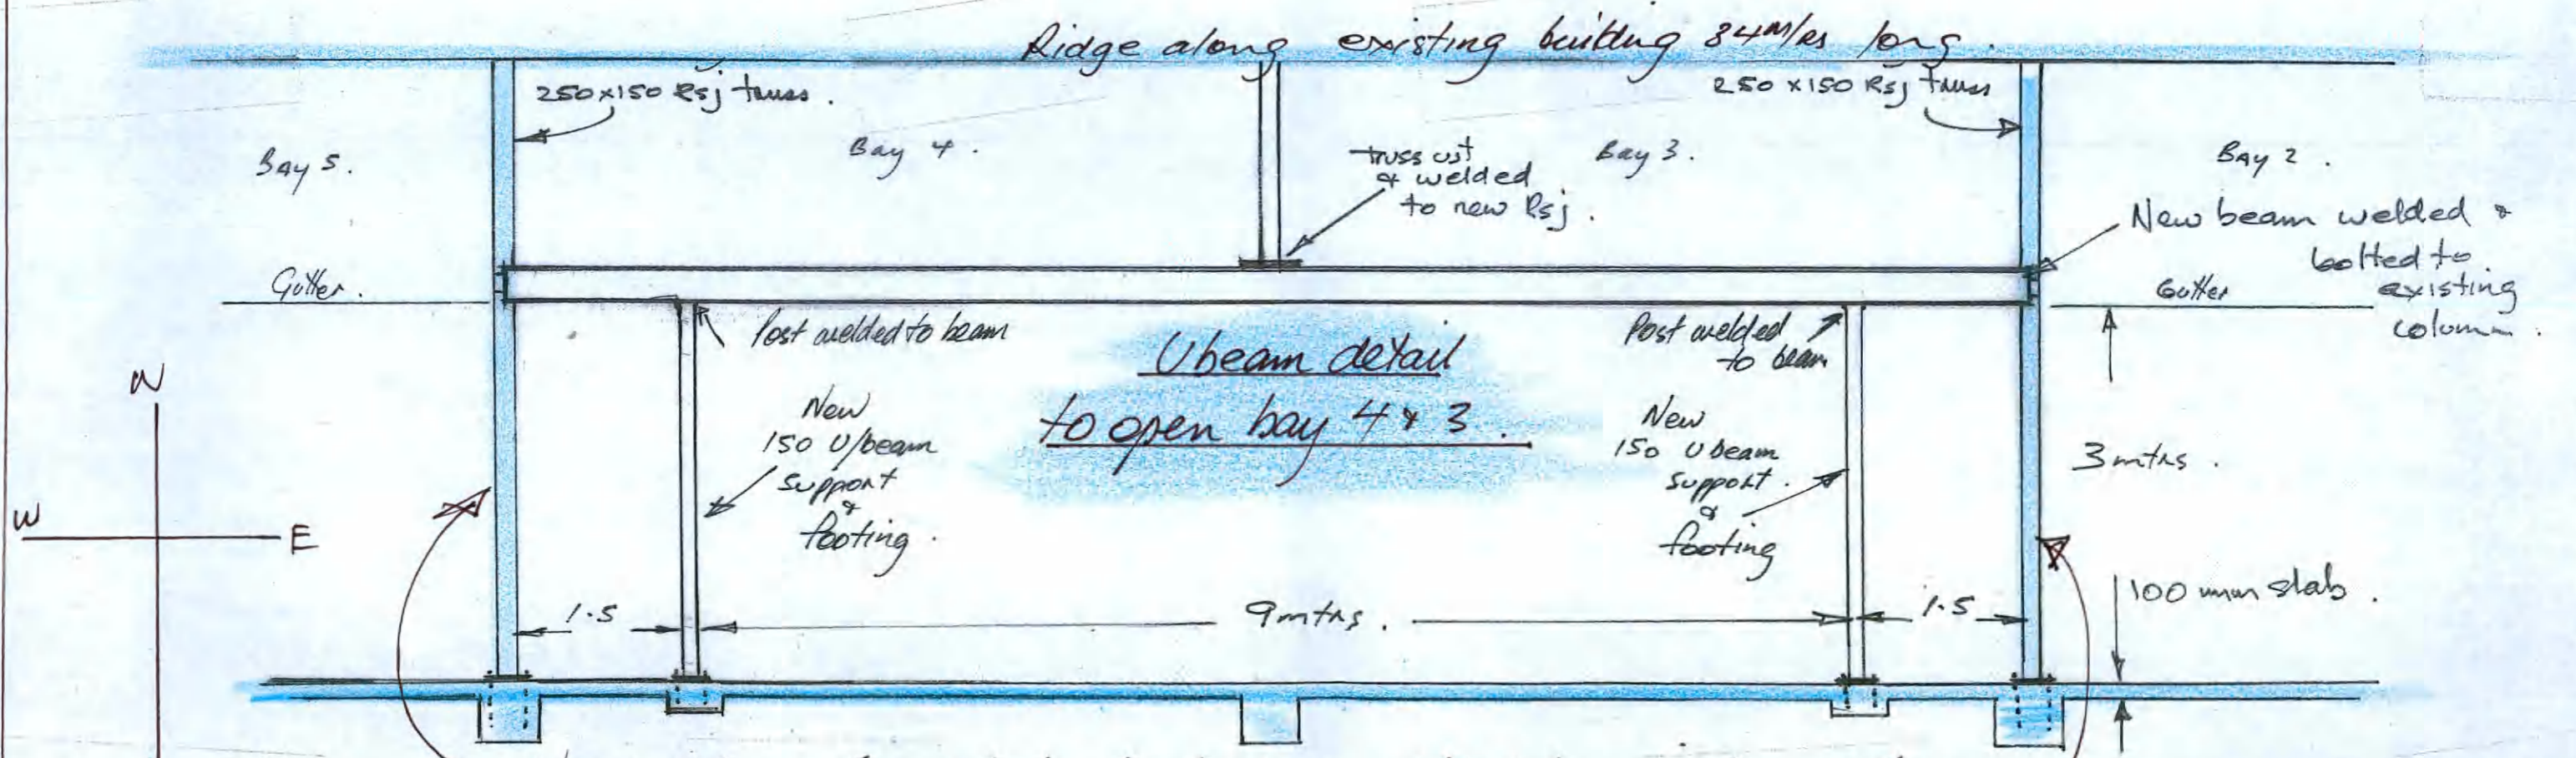 Ridge along existing building 34m/rs long.
250x150 Rsj truss.
250x150 Rsj truss
Bay 5.
Bay 4.
truss cut
& welded
to new Rsj.
Bay 3.
Bay 2.
New beam welded &
bolted to
existing
column.
Gutter.
Gutter
Post welded to beam
Ubeam detail
to open bay 4 & 3.
Post welded
to beam
N
W
E
New
150 U/beam
support
&
footing.
New
150 Ubeam
support.
&
footing
3mtrs.
100 mm slab.
1.5
9mtrs.
1.5